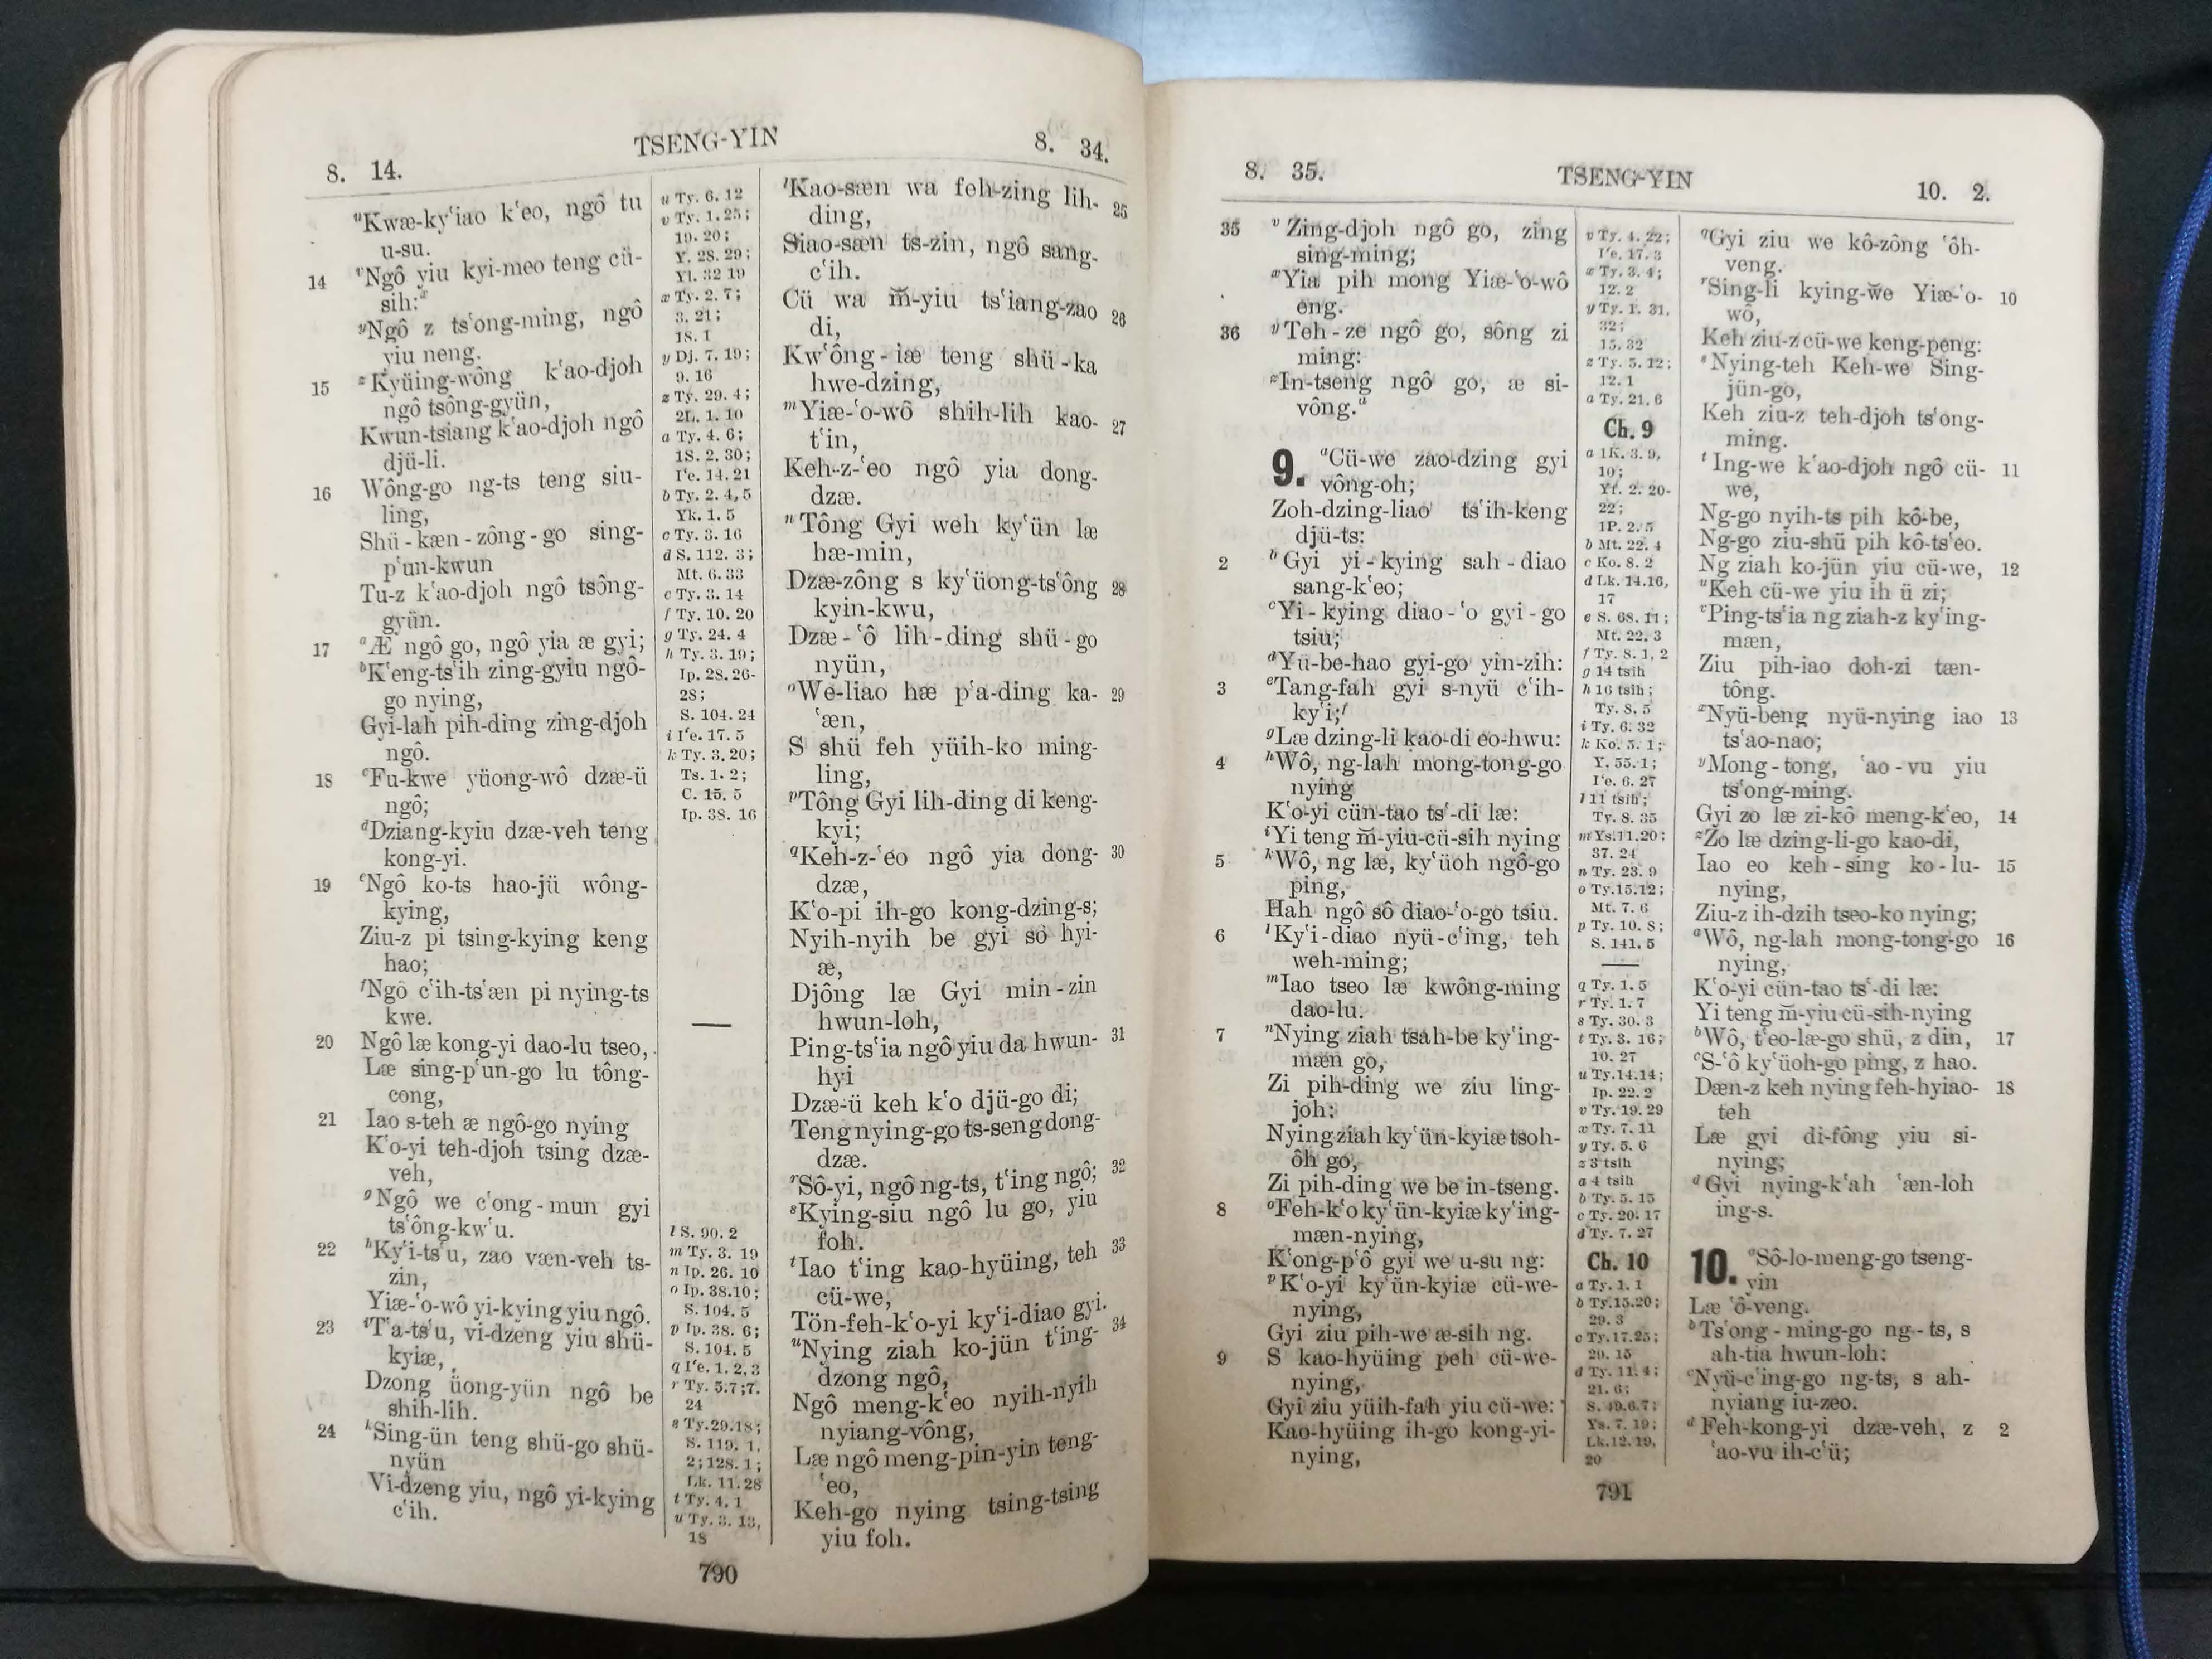 8. 14.
TSENG-YIN
8. 34.
"Kwæ-ky‘iao k‘eo, ngô tu
u-su.
14 ᵛNgô yiu kyi-meo teng cü-
sih:ˣ
ʸNgô z ts‘ong-ming, ngô
yiu neng.
15 ᶻKyüing-wông k‘ao-djoh
ngô tsông-gyün,
Kwun-tsiang k‘ao-djoh ngô
djü-li.
16 Wông-go ng-ts teng siu-
ling,
Shü-kæn-zông-go sing-
p‘un-kwun
Tu-z k‘ao-djoh ngô tsông-
gyün.
17 ᵃÆ ngô go, ngô yia æ gyi;
ᵇK‘eng-ts‘ih zing-gyiu ngô-
go nying,
Gyi-lah pih-ding zing-djoh
ngô.
18 ᶜFu-kwe yüong-wô dzæ-ü
ngô;
ᵈDziang-kyiu dzæ-veh teng
kong-yi.
19 ᵉNgô ko-ts hao-jü wông-
kying,
Ziu-z pi tsing-kying keng
hao;
ᶠNgô c‘ih-ts‘æn pi nying-ts
kwe.
20 Ngô læ kong-yi dao-lu tseo,
Læ sing-p‘un-go lu tông-
cong,
21 Iao s-teh æ ngô-go nying
K‘o-yi teh-djoh tsing dzæ-
veh,
ᵍNgô we c‘ong-mun gyi
ts‘ông-kw‘u.
22 ʰKy‘i-ts‘u, zao væn-veh ts-
zin,
Yiæ-‘o-wô yi-kying yiu ngô.
23 ⁱT‘a-ts‘u, vi-dzeng yiu shü-
kyiæ,
Dzong üong-yün ngô be
shih-lih.
24 ᵏSing-ün teng shü-go shü-
nyün
Vi-dzeng yiu, ngô yi-kying
c‘ih.
u Ty. 6. 12
v Ty. 1. 25;
19. 20;
Y. 28. 29;
Yl. 32 19
x Ty. 2. 7;
3. 21;
18. 1
y Dj. 7. 19;
9. 16
z Ty. 29. 4;
2L. 1. 10
a Ty. 4. 6;
1S. 2. 30;
I‘e. 14. 21
b Ty. 2. 4, 5
Yk. 1. 5
c Ty. 3. 16
d S. 112. 3;
Mt. 6. 33
e Ty. 3. 14
f Ty. 10. 20
g Ty. 24. 4
h Ty. 3. 19;
Ip. 28. 26-
28;
S. 104. 24
i I‘e. 17. 5
k Ty. 3. 20;
Ts. 1. 2;
C. 15. 5
Ip. 38. 16
l S. 90. 2
m Ty. 3. 19
n Ip. 26. 10
o Ip. 38. 10;
S. 104. 5
p Ip. 38. 6;
S. 104. 5
q I‘e. 1. 2, 3
r Ty. 5. 7; 7.
24
s Ty. 29. 18;
S. 119. 1,
2; 128. 1;
Lk. 11. 28
t Ty. 4. 1
u Ty. 3. 13,
18
ˡKao-sæn wa feh-zing lih- 25
ding,
Siao-sæn ts-zin, ngô sang-
c‘ih.
Cü wa m̆-yiu ts‘iang-zao 26
di,
Kw‘ông-iæ teng shü-ka
hwe-dzing,
ᵐYiæ-‘o-wô shih-lih kao- 27
t‘in,
Keh-z-‘eo ngô yia dong-
dzæ.
ⁿTông Gyi weh ky‘ün læ
hæ-min,
Dzæ-zông s ky‘üong-ts‘ông 28
kyin-kwu,
Dzæ-‘ô lih-ding shü-go
nyün,
ᵒWe-liao hæ p‘a-ding ka- 29
‘æn,
S shü feh yüih-ko ming-
ling,
ᵖTông Gyi lih-ding di keng-
kyi;
qKeh-z-‘eo ngô yia dong- 30
dzæ,
K‘o-pi ih-go kong-dzing-s;
Nyih-nyih be gyi sô hyi-
æ,
Djông læ Gyi min-zin
hwun-loh,
Ping-ts‘ia ngô yiu da hwun- 31
hyi
Dzæ-ü keh k‘o djü-go di;
Teng nying-go ts-seng dong-
dzæ.
ʳSô-yi, ngô ng-ts, t‘ing ngô; 32
ˢKying-siu ngô lu go, yiu
foh.
ᵗIao t‘ing kao-hyüing, teh 33
cü-we,
Tön-feh-k‘o-yi ky‘i-diao gyi.
ᵘNying ziah ko-jün t‘ing- 34
dzong ngô,
Ngô meng-k‘eo nyih-nyih
nyiang-vông,
Læ ngô meng-pin-yin teng-
‘eo,
Keh-go nying tsing-tsing
yiu foh.
790
8. 35.
TSENG-YIN
10. 2.
35 ᵛZing-djoh ngô go, zing
sing-ming;
ˣYia pih mong Yiæ-‘o-wô
eng.
36 ʸTeh-ze ngô go, sông zi
ming:
ᶻIn-tseng ngô go, æ si-
vông.ᵃ
9. ᵃCü-we zao-dzing gyi
vông-oh;
Zoh-dzing-liao ts‘ih-keng
djü-ts:
2 ᵇGyi yi-kying sah-diao
sang-k‘eo;
ᶜYi-kying diao-‘o gyi-go
tsiu;
ᵈYü-be-hao gyi-go yin-zih:
3 ᵉTang-fah gyi s-nyü c‘ih-
ky‘i;ᶠ
ᵍLæ dzing-li kao-di eo-hwu:
4 ʰWô, ng-lah mong-tong-go
nying
K‘o-yi cün-tao ts‘-di læ:
ⁱYi teng m̆-yiu-cü-sih nying
5 ᵏWô, ng læ, ky‘üoh ngô-go
ping,
Hah ngô sô diao-‘o-go tsiu.
6 ˡKy‘i-diao nyü-c‘ing, teh
weh-ming;
ᵐIao tseo læ kwông-ming
dao-lu.
7 ⁿNying ziah tsah-be ky‘ing-
mæn go,
Zi pih-ding we ziu ling-
joh:
Nying ziah ky‘ün-kyiæ tsoh-
ôh go,
Zi pih-ding we be in-tseng.
8 ᵒFeh-k‘o ky‘ün-kyiæ ky‘ing-
mæn-nying,
K‘ong-p‘ô gyi we u-su ng:
ᵖK‘o-yi ky‘ün-kyiæ cü-we-
nying,
Gyi ziu pih-we æ-sih ng.
9 S kao-hyüing peh cü-we-
nying,
Gyi ziu yüih-fah yiu cü-we:
Kao-hyüing ih-go kong-yi-
nying,
v Ty. 4. 22;
I‘e. 17. 3
x Ty. 3. 4;
12. 2
y Ty. 1. 31,
32;
15. 32
z Ty. 5. 12;
12. 1
a Ty. 21. 6
Ch. 9
a 1K. 3. 9,
10;
Yf. 2. 20-
22;
1P. 2. 5
b Mt. 22. 4
c Ko. 8. 2
d Lk. 14. 16,
17
e S. 68. 11;
Mt. 22. 3
f Ty. 8. 1, 2
g 14 tsih
h 16 tsih;
Ty. 8. 5
i Ty. 6. 32
k Ko. 5. 1;
Y. 55. 1;
I‘e. 6. 27
l 11 tsih;
Ty. 8. 35
m Ys. 11. 20;
37. 24
n Ty. 23. 9
o Ty. 15. 12;
Mt. 7. 6
p Ty. 10. 8;
S. 141. 5
q Ty. 1. 5
r Ty. 1. 7
s Ty. 30. 3
t Ty. 3. 16;
10. 27
u Ty. 14. 14;
Ip. 22. 2
v Ty. 19. 29
x Ty. 7. 11
y Ty. 5. 6
z 3 tsih
a 4 tsih
b Ty. 5. 15
c Ty. 20. 17
d Ty. 7. 27
Ch. 10
a Ty. 1. 1
b Ty. 15. 20;
29. 3
c Ty. 17. 25;
29. 15
d Ty. 11. 4;
21. 6;
S. 49. 6. 7;
Ys. 7. 19;
Lk. 12. 19,
20
qGyi ziu we kô-zông ‘ôh-
veng.
ʳSing-li kying-we Yiæ-‘o- 10
wô,
Keh ziu-z cü-we keng-peng:
ˢNying-teh Keh-we Sing-
jün-go,
Keh ziu-z teh-djoh ts‘ong-
ming.
ᵗIng-we k‘ao-djoh ngô cü- 11
we,
Ng-go nyih-ts pih kô-be,
Ng-go ziu-shü pih kô-ts‘eo.
Ng ziah ko-jün yiu cü-we, 12
ᵘKeh cü-we yiu ih ü zi;
ᵛPing-ts‘ia ng ziah-z ky‘ing-
mæn,
Ziu pih-iao doh-zi tæn-
tông.
ˣNyü-beng nyü-nying iao 13
ts‘ao-nao;
ʸMong-tong, ‘ao-vu yiu
ts‘ong-ming.
Gyi zo læ zi-kô meng-k‘eo, 14
ᶻZo læ dzing-li-go kao-di,
Iao eo keh-sing ko-lu- 15
nying,
Ziu-z ih-dzih tseo-ko nying;
ᵃWô, ng-lah mong-tong-go 16
nying,
K‘o-yi cün-tao ts‘-di læ:
Yi teng m̆-yiu-cü-sih-nying
ᵇWô, t‘eo-læ-go shü, z din, 17
ᶜS-‘ô ky‘üoh-go ping, z hao.
Dæn-z keh nying feh-hyiao- 18
teh
Læ gyi di-fông yiu si-
nying;
ᵈGyi nying-k‘ah ‘æn-loh
ing-s.
10. ᵃSô-lo-meng-go tseng-
yin
Læ ‘ô-veng.
ᵇTs‘ong-ming-go ng-ts, s
ah-tia hwun-loh:
ᶜNyü-c‘ing-go ng-ts, s ah-
nyiang iu-zeo.
ᵈFeh-kong-yi dzæ-veh, z 2
‘ao-vu ih-c‘ü;
791